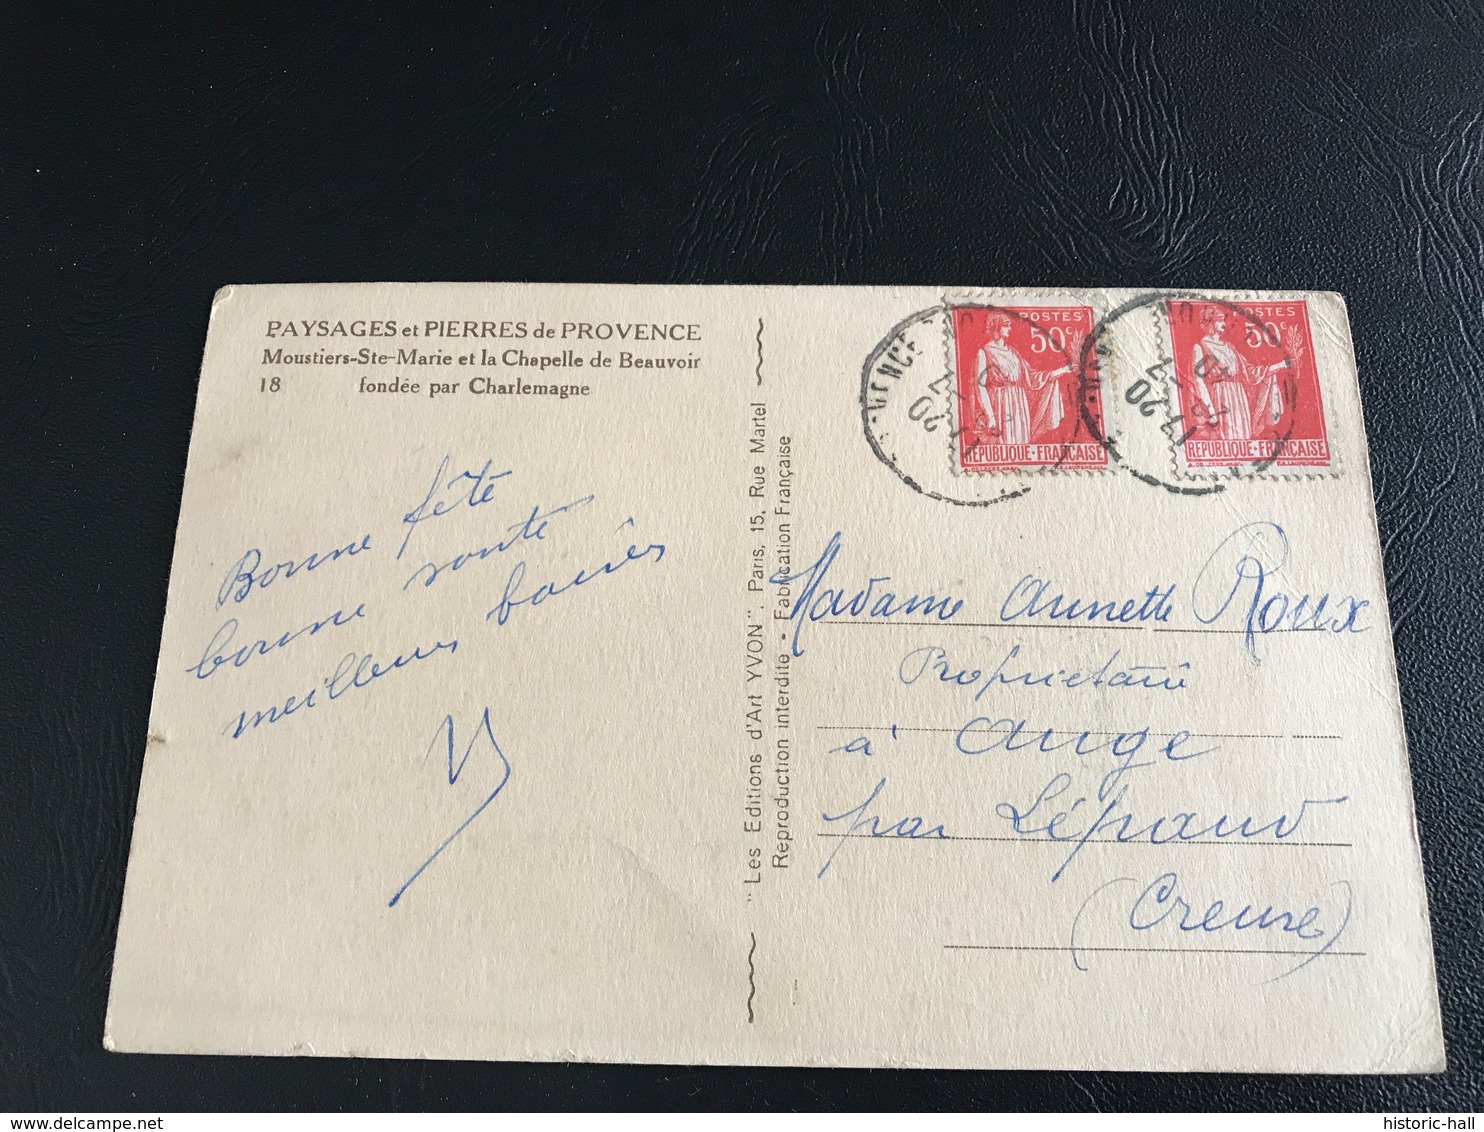 PAYSAGES et PIERRES de PROVENCE
Moustiers-Ste-Marie et la Chapelle de Beauvoir
18 fondée par Charlemagne
Bonne fête
bonne sante
meilleurs baisers
"Les Editions d'Art YVON". Paris, 15, Rue Martel
Reproduction interdite - Fabrication Française
POSTES
50c
REPUBLIQUE·FRANÇAISE
POSTES
50c
REPUBLIQUE·FRANÇAISE
17 20
17 20
Madame Annette Roux
Propriétaire
à Auge
par Lépaud
(Creuse)
historic-hall